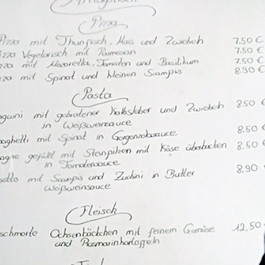 Pizza
Pizza mit Thunfisch, Mais und Zwiebeln 7,50 €
Pizza Vegetarisch mit Parmesan 7,50 €
Pizza mit Mozzarella, Tomaten und Basilikum 7,50 €
Pizza mit Spinat und kleinen Scampis 8,90 €
Pasta
mit gebratener Kalbsleber und Zwiebeln 8,50 €
in Weißweinsauce
mit Spinat in Gorgonzolasauce 8,50 €
gefüllt mit Steinpilzen mit Käse überbacken 8,50 €
in Tomatensauce
mit Scampis und Zuchini in Butter 8,90
Weißweinsauce
Fleisch
schmorte Ochsenbäckchen mit feinem Gemüse 12,50
und Rosmarinkartoffeln